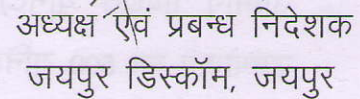 अध्यक्ष एवं प्रबन्ध निदेशक
जयपुर डिस्कॉम, जयपुर